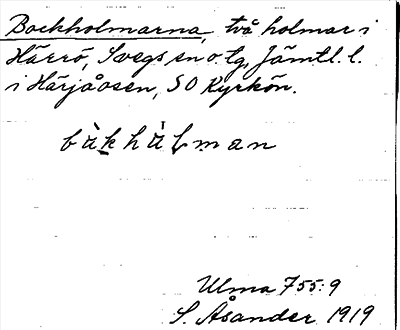 Bockholmarna, två holmar i
Härrö, Svegs sn o. tg, Jämtl. l.
i Härjåosen, SO Kyrkön.
bàkhàlman
Ulma 755:9
S. Åsander 1919